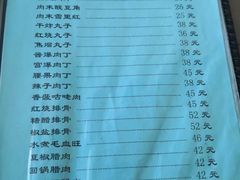 肉末酸豆角 26元
肉末雪里红 25元
干炸丸子 38元
红烧丸子 38元
焦熘丸子 38元
酱爆肉丁 38元
宫爆肉丁 38元
腰果肉丁 45元
辣子肉丁 38元
香菠咕咾肉 45元
红烧排骨 52元
糖醋排骨 52元
椒盐排骨 52元
水煮毛血旺 46元
豆椒腊肉 42元
回锅腊肉 42元
42元